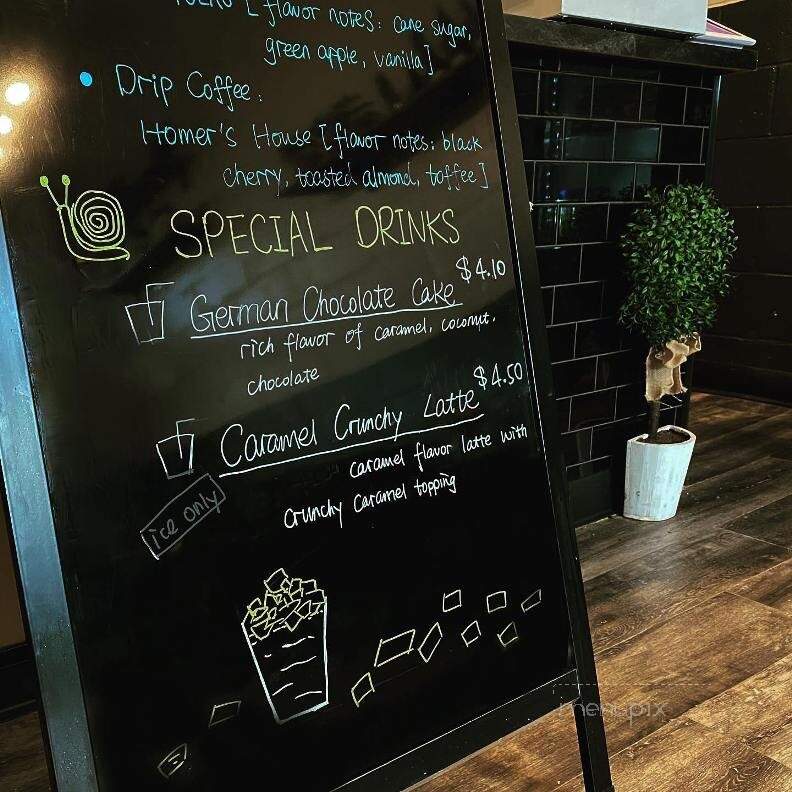 [flavor notes: cane sugar,
green apple, vanilla]
Drip Coffee:
Homer's House [flavor notes: black
cherry, toasted almond, toffee]
SPECIAL DRINKS
German Chocolate Cake $4.10
rich flavor of caramel, coconut,
chocolate
Caramel Crunchy Latte $4.50
caramel flavor latte with
crunchy caramel topping
ice only
menupix